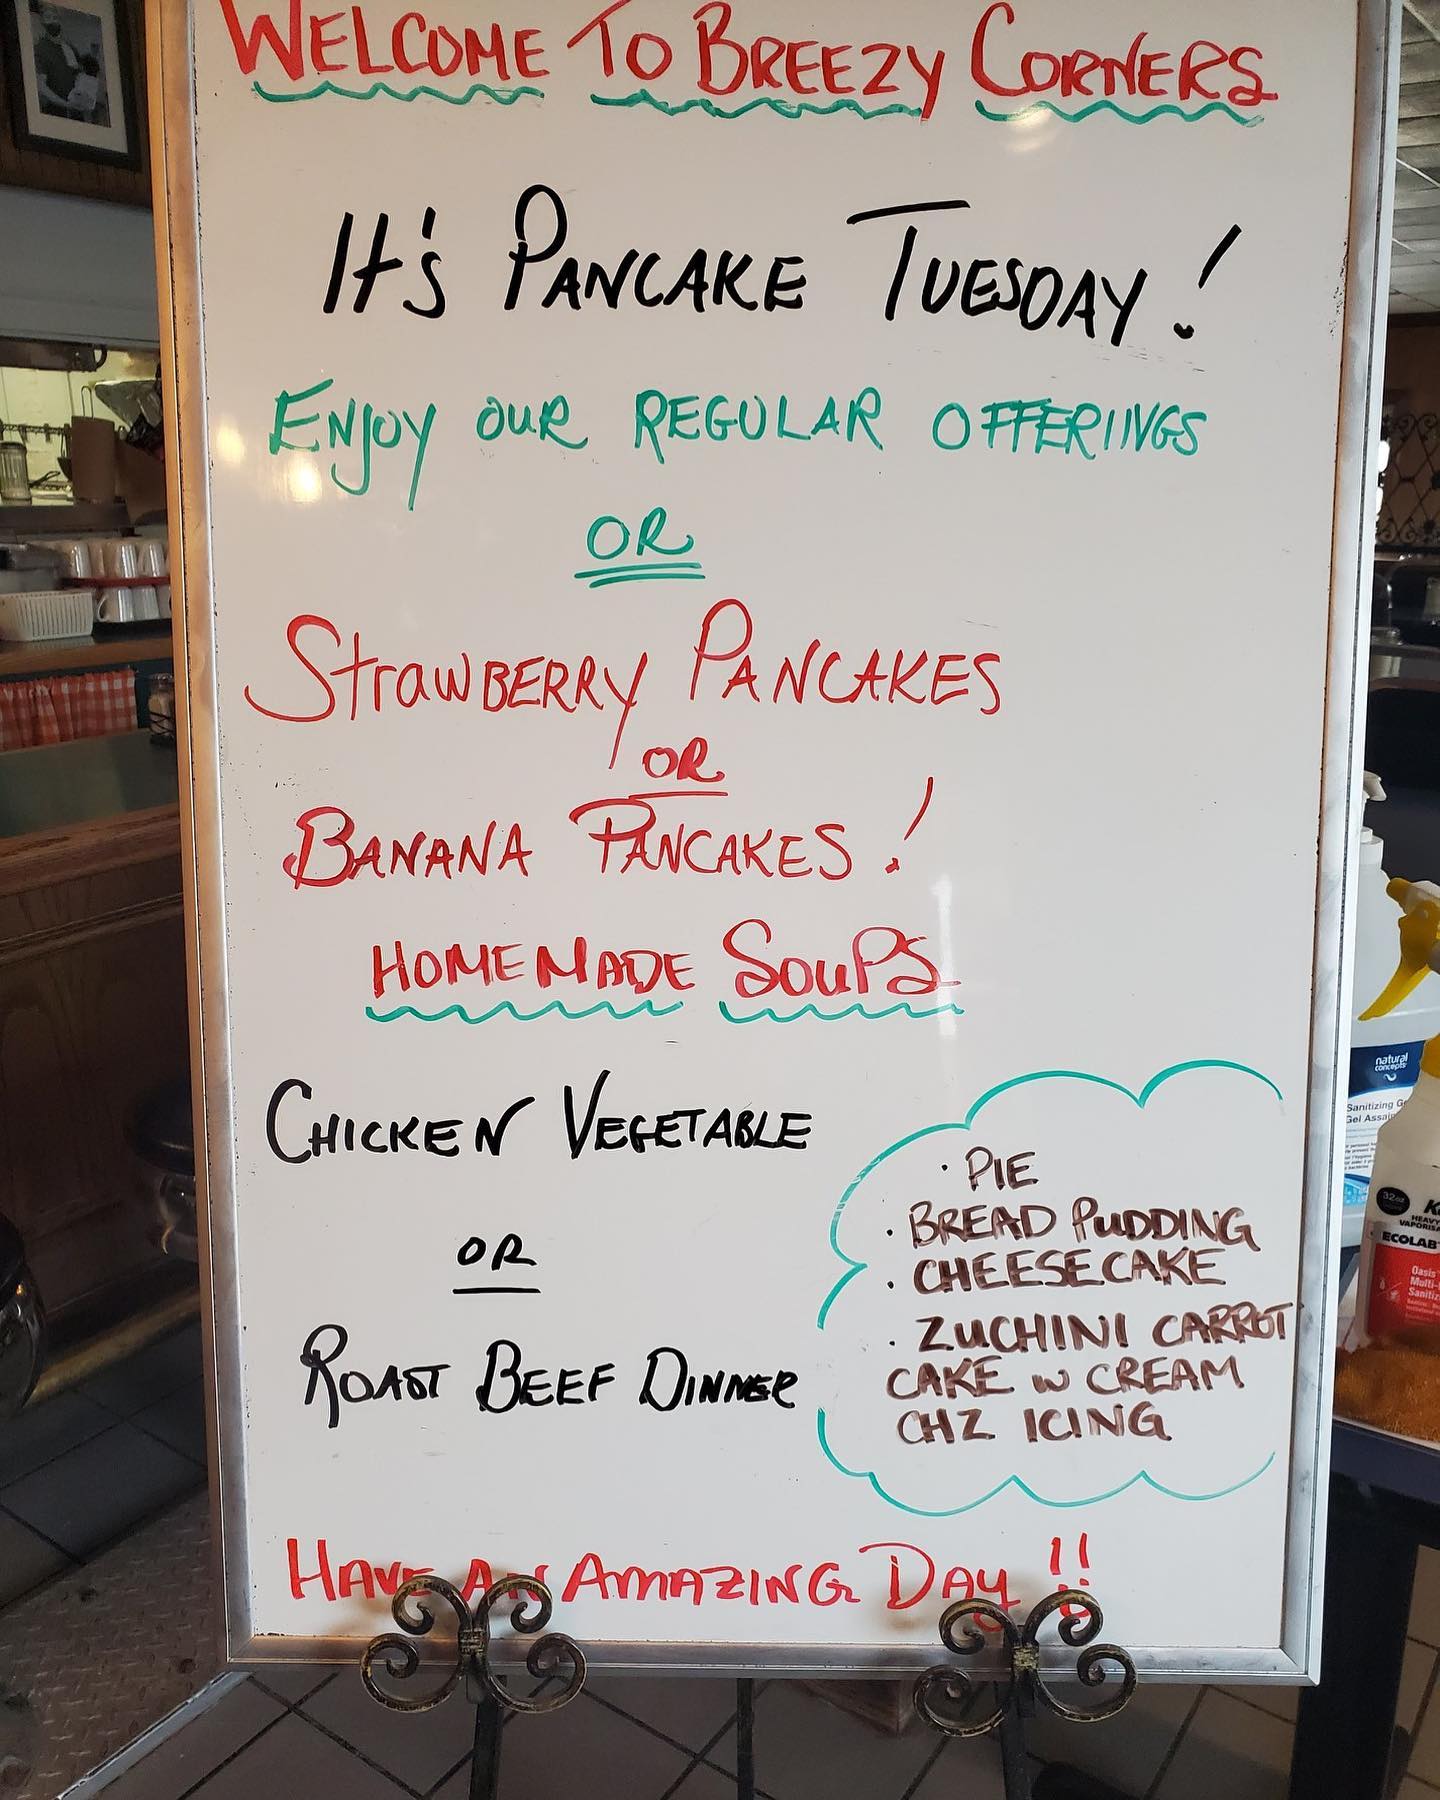 WELCOME TO BREEZY CORNERS
It's PANCAKE TUESDAY!
ENJOY OUR REGULAR OFFERIINGS
OR
StrawBERRY PANCAKES
OR
BANANA PANCAKES!
HOMEMADE SOUPS
CHICKEN VEGETABLE
OR
ROAST BEEF DINNER
· PIE
· BREAD PUDDING
· CHEESECAKE
· ZUCHINI CARROT
CAKE w CREAM
CHZ ICING
HAVE AN AMAZING DAY !!
natural
concepts
Sanitizing
32oz
HEAVY
ECOLAB
Oasis
Multi-